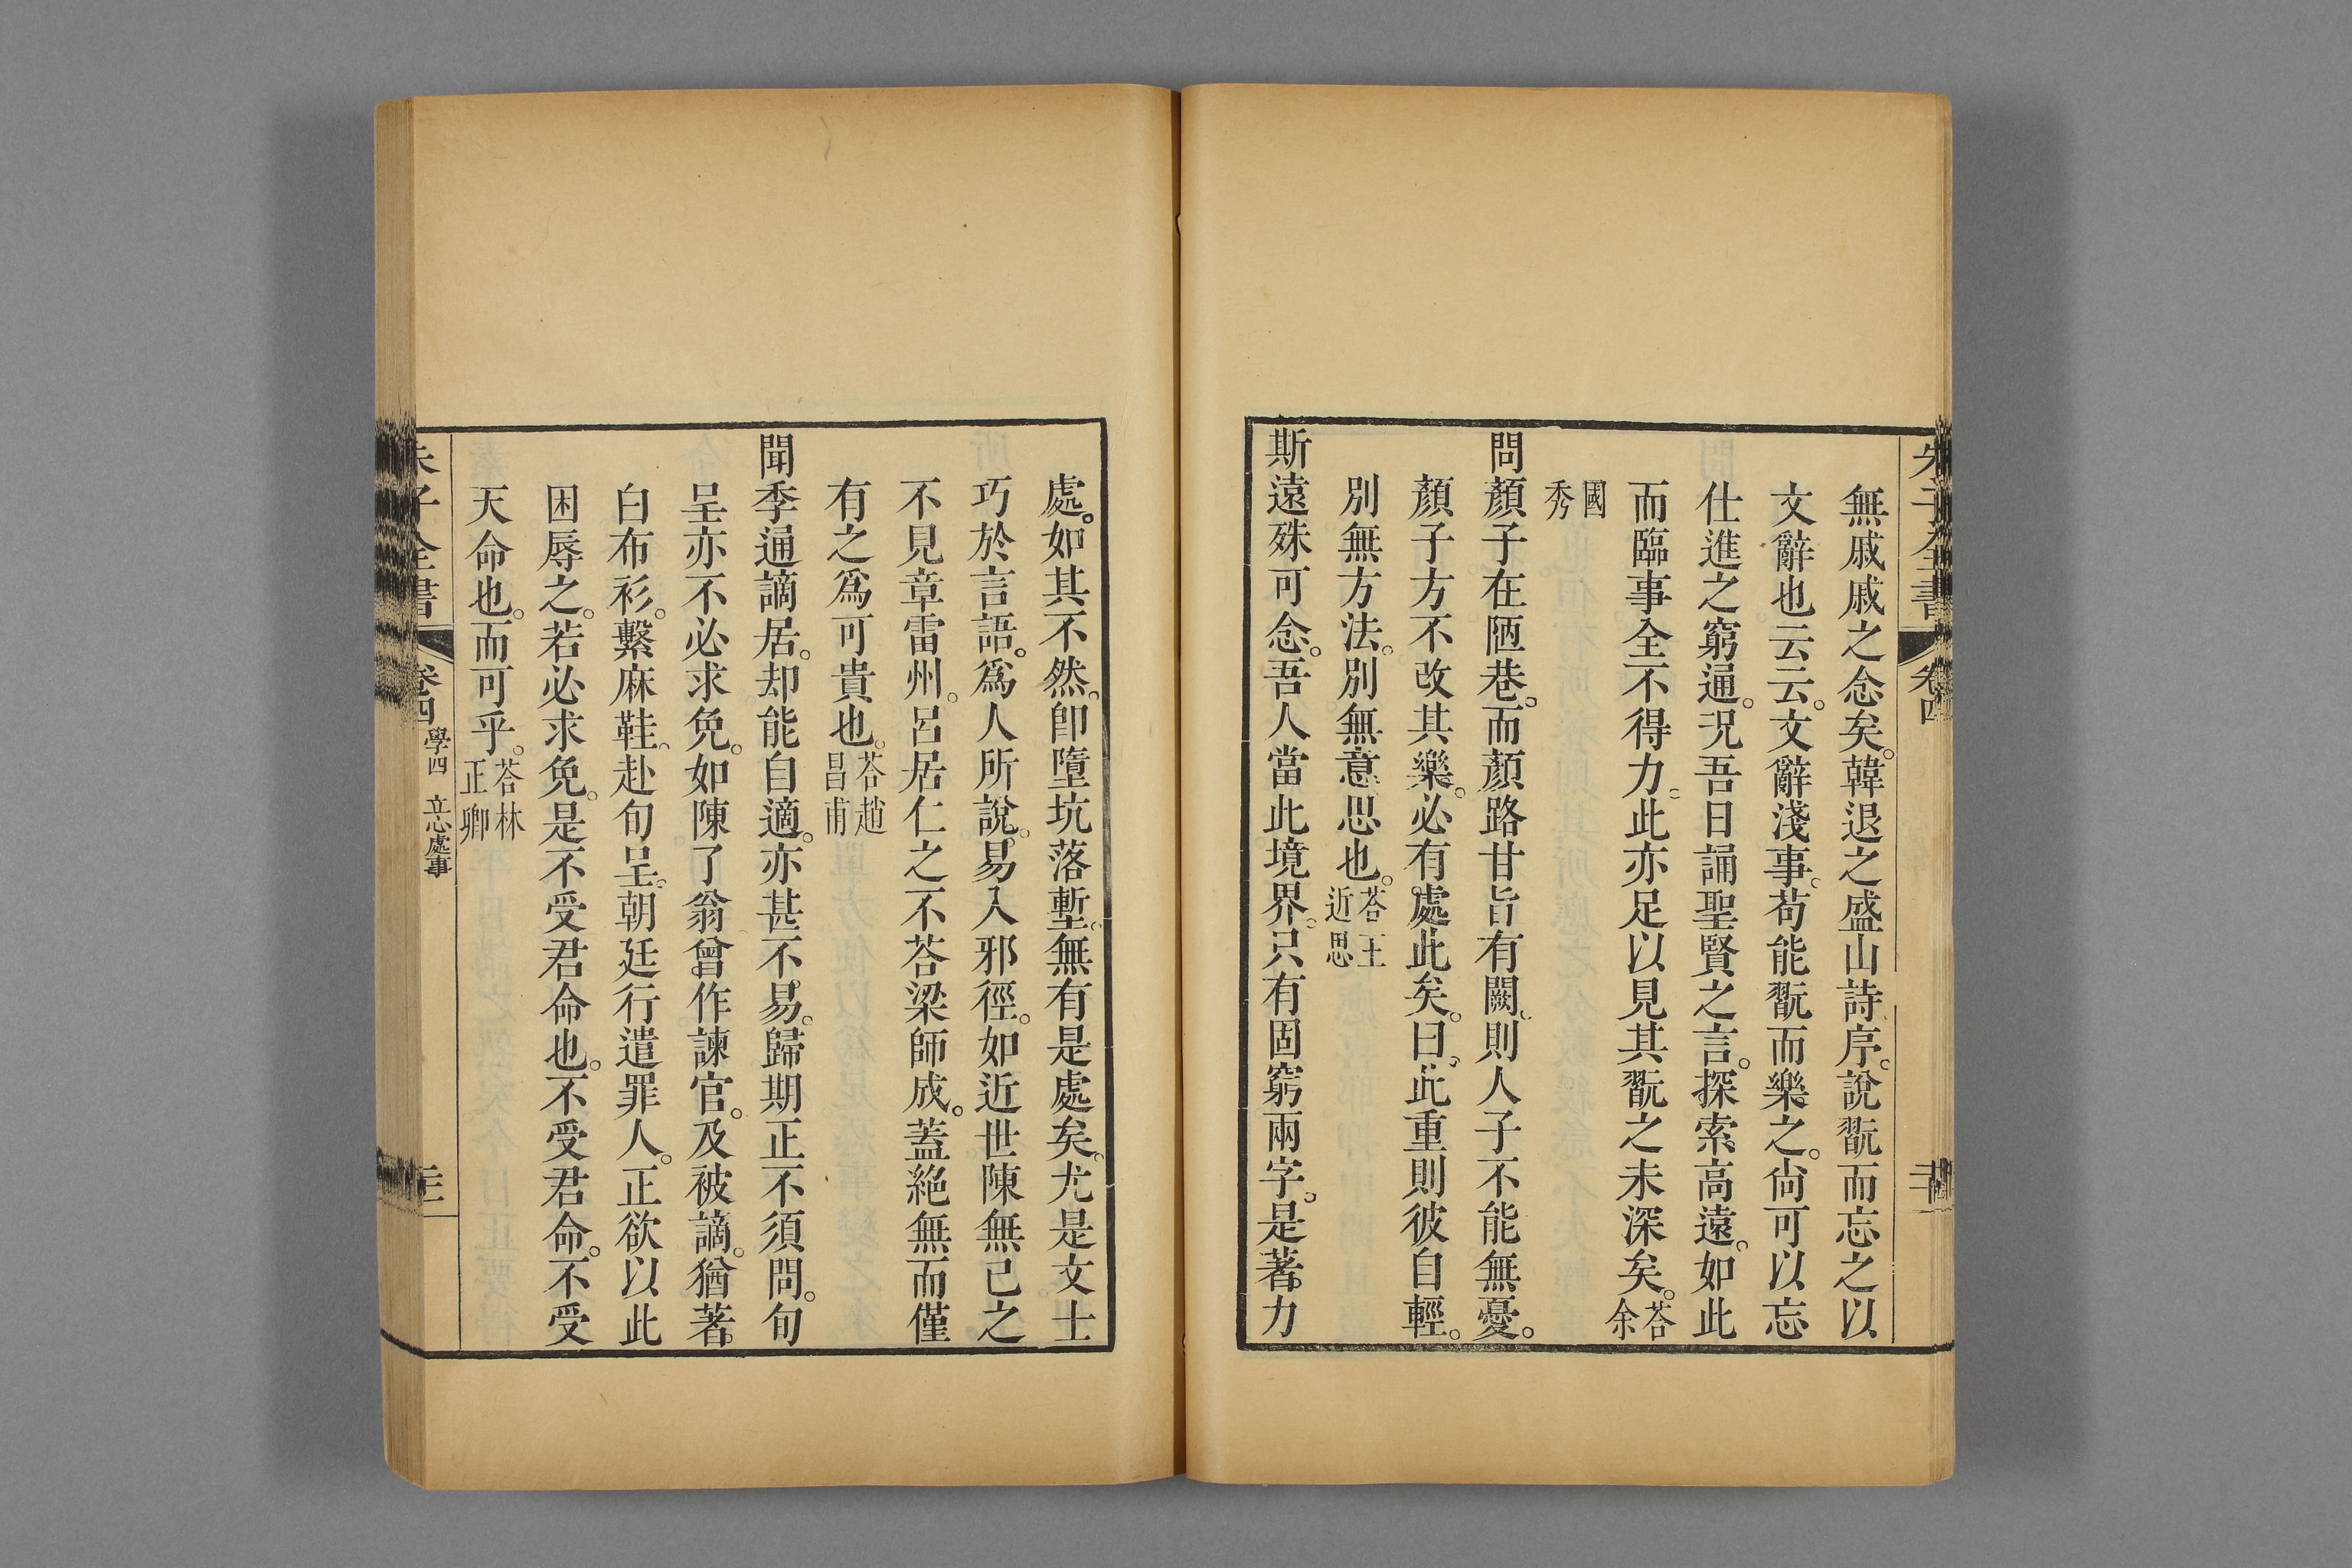 朱子全書 卷四
無戚戚之念矣。韓退之盛山詩序。說翫而忘之以
文辭也云云。文辭淺事。苟能翫而樂之。尙可以忘
仕進之窮通。況吾日誦聖賢之言。探索高遠。如此
而臨事全不得力。此亦足以見其翫之未深矣。荅余
國秀
問顏子在陋巷。而顏路甘旨有闕。則人子不能無憂。
顏子方不改其樂。必有處此矣。曰。此重則彼自輕。
別無方法。別無意思也。荅王近思
斯遠殊可念。吾人當此境界。只有固窮兩字。是著力
處。如其不然。卽墮坑落塹。無有是處矣。尤是文士
巧於言語。爲人所說。易入邪徑。如近世陳無己之
不見章雷州。呂居仁之不荅梁師成。蓋絶無而僅
有之爲可貴也。荅趙昌甫
聞季通謫居。却能自適。亦甚不易。歸期正不須問。旬
呈亦不必求免。如陳了翁曾作諫官。及被謫。猶著
白布衫。繫麻鞋。赴旬呈。朝廷行遣罪人。正欲以此
困辱之。若必求免。是不受君命也。不受君命。不受
天命也。而可乎。荅林正卿
朱子全書 卷四 學四 立心處事